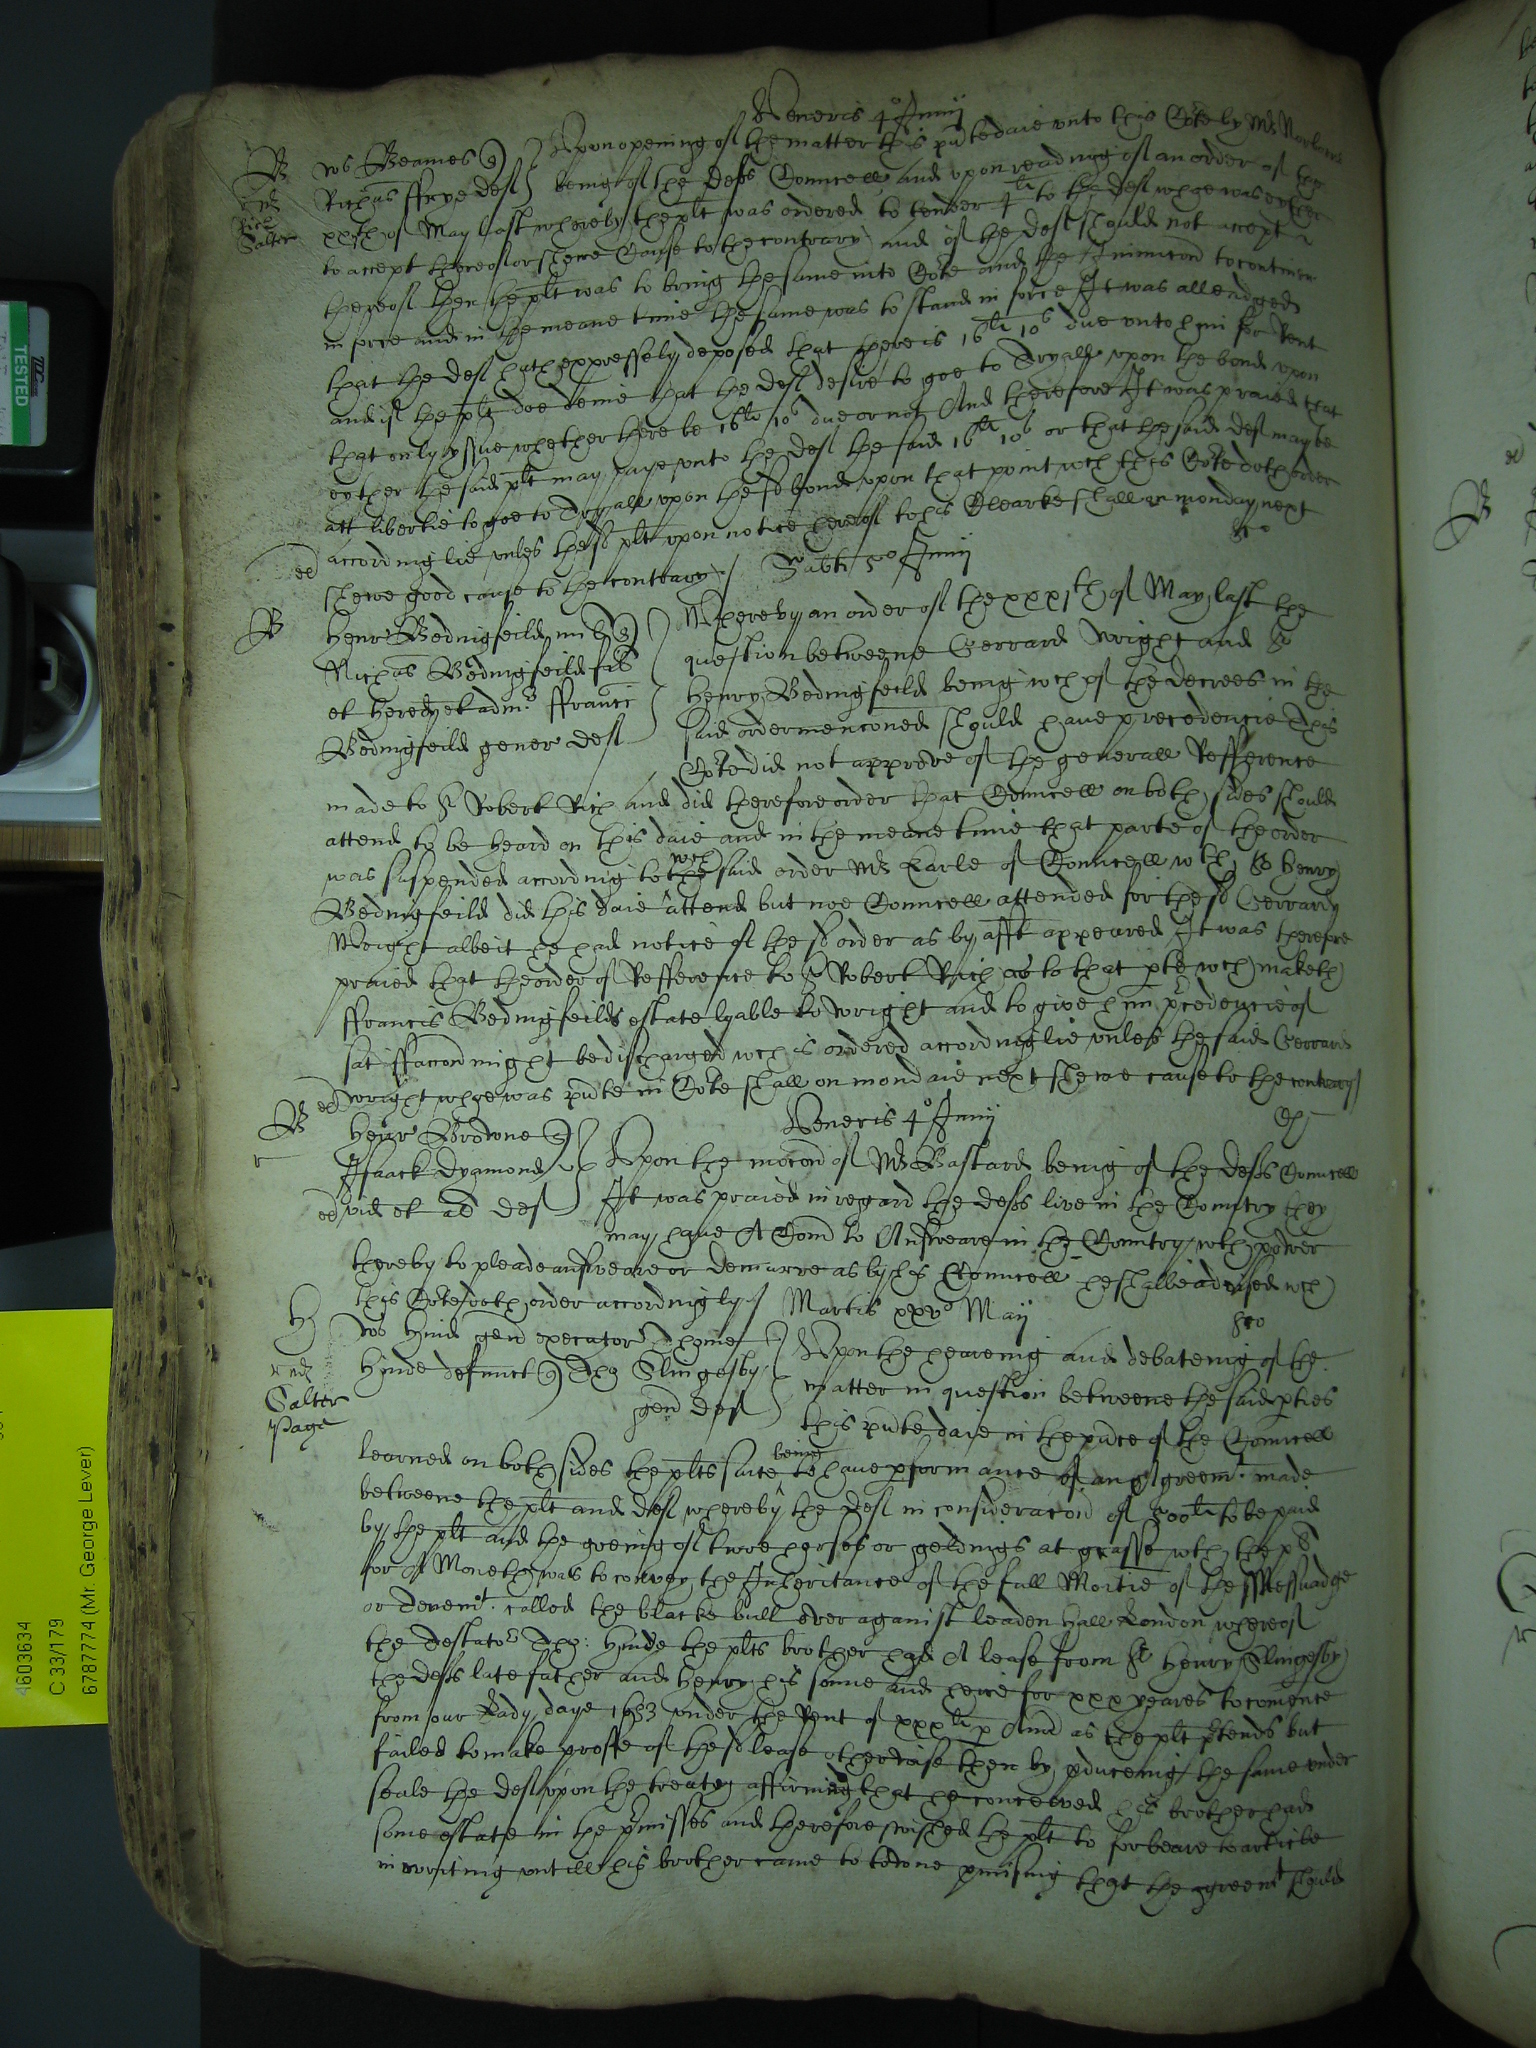 Veneris 4° Junij
B
ws Beames q
Richus Frye def
Rich
Salter
Upon opening of the matter this pnte daie unto this Cote by Mr Norborne
being of the defts Councell and upon reading of an order of the
xxjth of May last whereby the plt was ordered to tender 4li to the def whoe was either
to accept thereof or shewe Cause to the contrary and if the def should not accept
thereof then the plt was to bring the same into Cote and the Iniunccon to continue
in force and in the meane time the same was to stand in force It was alleadged
that the def hath expressely deposed that there is 16li 10s due unto him for Rent
and if the plt doe denie that the def desire to goe to Tryall upon the bond upon
that only yssue whether there be 16li 10s due or not And therefore It was praied that
eyther the said plt may paye unto the def the said 16li 10s or that the said def may be
att libertie to goe to Tryall upon the sd bond upon that point wch this Cote doth order
accordinglie unles the sd plt upon notice hereof to his Clearke shall on monday next
shewe good cause to the contrary /
ed
Sabti 5° Junij
B
Henr Bedingfeild mil q
Nichas Bedingfeild fil
et hered et adm Franci
Bedingfeild gener def
Whereby an order of the xxxjth of May last the
question betweene Gerrard Wright and Sr
Henry Bedingfeild being wch of the decrees in the
said order menconed should have precedencie This
Cote did not approve of the generall Refference
made to Sr Robert Rich and did therefore order that Councell on both sides should
attend to be heard on this daie and in the meane time that parte of the order
was suspended according to wch said order Mr Earle of Councell wth Sr Henry
Bedingfeild did this daie attend but noe Councell attended for the sd Gerrard
Wright albeit he had notice of the sd order as by afft appeared It was therefore
praied that the order of Refference to Sr Robert Rich as to that pte wch maketh
Francis Bedingfeilds estate lyable to Wright and to give him precedencie of
satisfaccon might be discharged wch is ordered accordinglie unles the said Gerrard
Wright whoe was pnte in Cote shall on mondaie next shewe cause to the contrary /
ed
Veneris 4° Junij
B
Henr Browne q
Isaack Dyamond
vid et al def
ed
Upon the mocon of Mr Bastard being of the defts Councell
It was praied in regard the defts live in the Country they
may have A Com to Answeare in the Country wth power
thereby to pleade answeare or demurre as by his Councell he shalbe advised wch
this Cote doth order accordingly /
Martis xxv° Maij
H
Salter
Page
ws Hind gen executor Thome
Hinde defunct q Tho Slingesby
gen def
Upon the heareing and debateing of the
matter in question betweene the said pties
this pnte daie in the pnce of the Councell
learned on both sides the plts suite being to have pformance of an Agreemt made
betweene the plt and def whereby the def in consideracon of 500li to be paid
by the plt and the goeing of twoe horses or geldings at grasse wth the pl
for A Moneth was to convey the Inheritance of the full Moitie of the Messuadge
or Tenemt called the blacke bull over against leaden hall London whereof
the Testator Tho: Hinde the plts brother had A lease from Sr Henry Slingesby
the defts late father and Henry his sonne and heire for xxx yeares to comence
from our Lady daye 1633 under the Rent of xxxli p Ann as the plt ptends but
failed to make proffe of the sd lease otherwise then by pduceing the same under
seale the def upon the treaty affirming that he conceived his brother had
some estate in the pmisses and therefore wished the plt to forbeare to article
in writing untill his brother came to towne pmising that the agreemt should
TESTED
4603634
C 33/179
6787774 (Mr. George Lever)